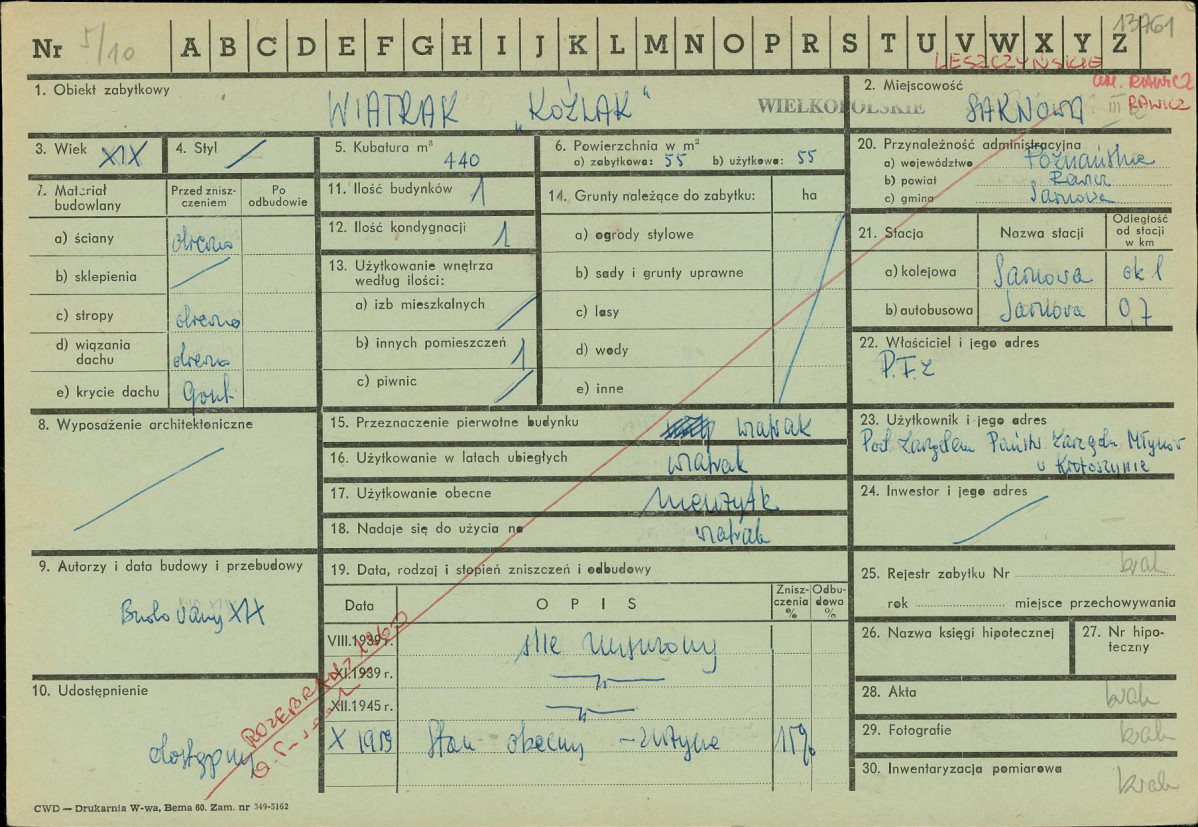 13761
Nr 5/10 A B C D E F G H I J K L M N O P R S T U V W X Y Z
LESZCZYŃSKIE
1. Obiekt zabytkowy
WIATRAK „KOŹLAK"
WIELKOPOLSKIE
2. Miejscowość
SARNOWA
RAWICZ
RAWICZ
3. Wiek XIX
4. Styl /
5. Kubatura m³
440
6. Powierzchnia w m²
a) zabytkowa: 55 b) użytkowa: 55
20. Przynależność administracyjna
a) województwo Poznańskie
b) powiat Rawicz
c) gmina Sarnowa
7. Materiał budowlany
Przed zniszczeniem
Po odbudowie
a) ściany drewno
b) sklepienia /
c) stropy drewno
d) wiązania dachu drewno
e) krycie dachu Gont
11. Ilość budynków 1
12. Ilość kondygnacji 1
13. Użytkowanie wnętrza według ilości:
a) izb mieszkalnych /
b) innych pomieszczeń 1
c) piwnic /
14. Grunty należące do zabytku: ha
a) ogrody stylowe
b) sady i grunty uprawne
c) lasy
d) wody
e) inne
21. Stacja
Nazwa stacji
Odległość od stacji w km
a) kolejowa Sarnowa ok 1
b) autobusowa Sarnowa 0,7
22. Właściciel i jego adres
P.F.Z
8. Wyposażenie architektoniczne
15. Przeznaczenie pierwotne budynku wiatrak
16. Użytkowanie w latach ubiegłych wiatrak
17. Użytkowanie obecne nieużytk
18. Nadaje się do użycia na wiatrak
23. Użytkownik i jego adres
Pod Zarządem Państw. Zarządu Młynów
w Krotoszynie
24. Inwestor i jego adres
9. Autorzy i data budowy i przebudowy
Budowany XIX
19. Data, rodzaj i stopień zniszczeń i odbudowy
Data
OPIS
Zniszczenia %
Odbudowa %
VIII.1939 r.
XI.1939 r. —"—
XII.1945 r. —"—
X 1959 Stan obecny – 15%
25. Rejestr zabytku Nr brak
rok miejsce przechowywania
26. Nazwa księgi hipotecznej
27. Nr hipoteczny
28. Akta brak
29. Fotografie brak
30. Inwentaryzacja pomiarowa brak
10. Udostępnienie
dostępny
ROZEBRANY 1960
CWD — Drukarnia W-wa, Bema 60. Zam. nr 349-5162